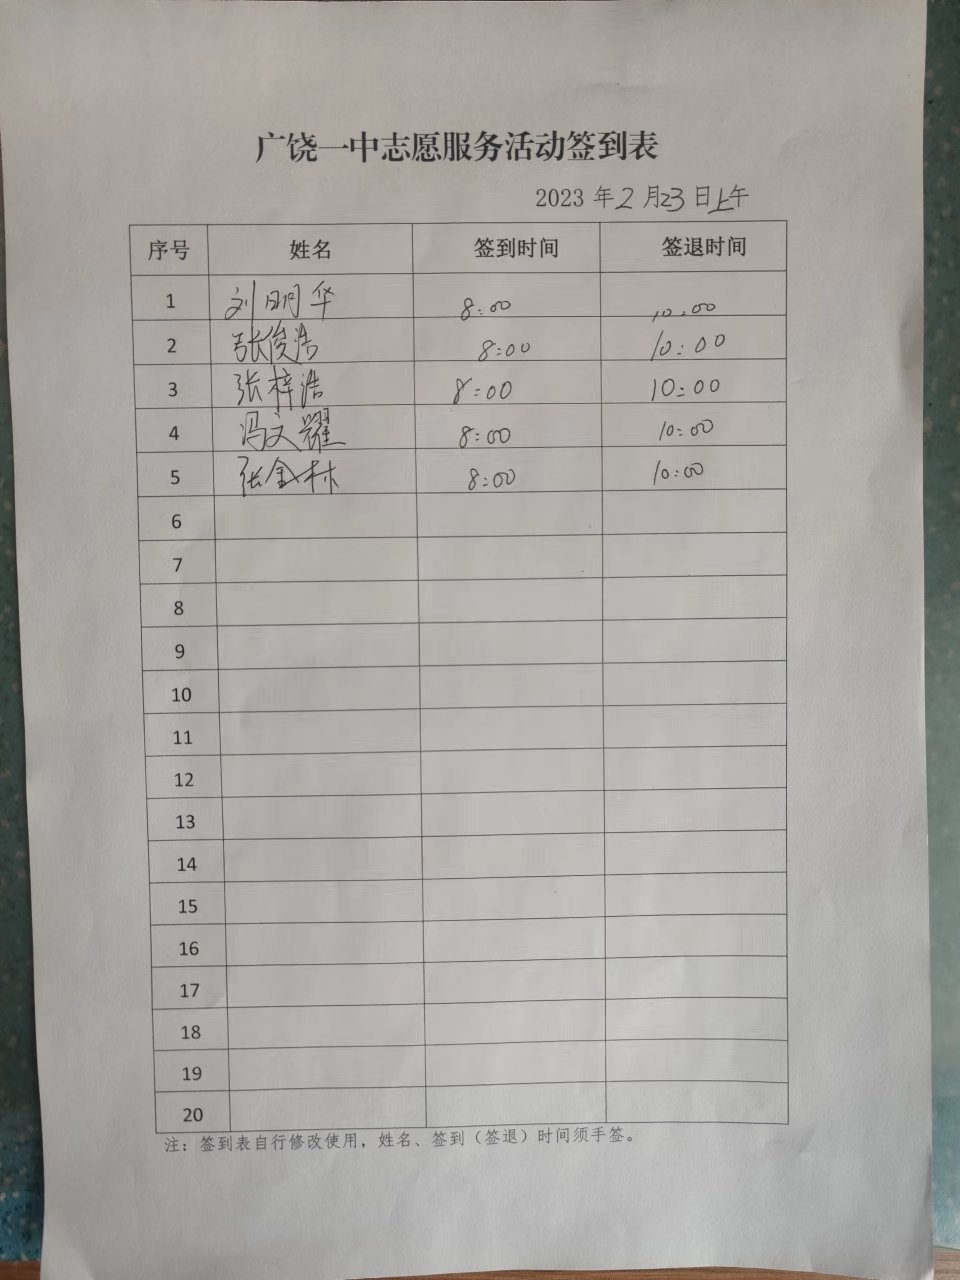 广饶一中志愿服务活动签到表
2023 年 2 月 23 日上午
序号 姓名 签到时间 签退时间
1 刘明华 8:00 10:00
2 张俊浩 8:00 10:00
3 张梓浩 8:00 10:00
4 冯文耀 8:00 10:00
5 张金林 8:00 10:00
6
7
8
9
10
11
12
13
14
15
16
17
18
19
20
注：签到表自行修改使用，姓名、签到（签退）时间须手签。